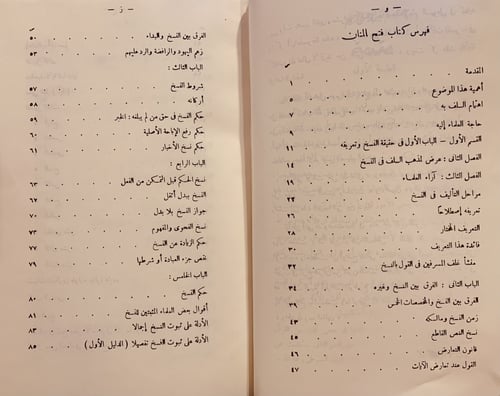 — و —
فهرس كتاب فتح المنان
ص
المقدمة . . . ١
أهمية هذا الموضوع . . . ٥
اهتمام السلف به . . . ٧
حاجة العلماء إليه . . . ٩
القسم الأول — الباب الأول فى حقيقة النسخ وتعريفه . . . ١١
الفصل الثانى : عرض لمذهب السلف فى النسخ . . . ١٤
الفصل الثالث : آراء العلماء . . . ١٩
مراحل التأليف فى النسخ . . . ٢٢
تعريفه إصطلاحاً . . . ٢٦
التعريف المختار . . . ٢٨
فائدة هذا التعريف . . . ٣٠
منشأ خلف المسرفين فى القول بالنسخ . . . ٣٢
الباب الثانى : الفرق بين النسخ وغيره . . . ٣٤
الفرق بين النسخ والمخصصات الخمس . . . ٣٩
زمن النسخ ومالكه . . . ٤٣
نسخ النص القاطع . . . ٤٥
قانون التعارض . . . ٤٦
القول عند تعارض الآيات . . . ٤٧
— ز —
ص
الفرق بين النسخ والبداء . . . ٥٠
زعم اليهود والرافضة والرد عليهم . . . ٥٣
الباب الثالث :
شروط النسخ . . . ٥٧
أركانه . . . ٥٨
حكم النسخ فى حق من لم يبلغه : الخبر . . . ٥٩
حكم رفع الإباحة الأصلية . . . ٦٠
نسخ الأخبار . . . ٦١
الباب الرابع :
نسخ الحكم قبل التمكن من الفعل . . . ٦٣
النسخ ببدل أثقل . . . ٦٧
جواز النسخ بلا بدل . . . ٧٠
نسخ الفحوى والمفهوم . . . ٧٣
حكم الزيادة عن النص . . . ٧٧
نقص جزء العبادة أو شرطها . . . ٧٩
الباب الخامس :
حكم النسخ . . . ٨٠
أقوال بعض العلماء المثبتين للنسخ . . . ٨١
الأدلة على ثبوت النسخ إجمالا . . . ٨٣
الأدلة على ثبوت النسخ تفصيلا ( الدليل الأول ) . . . ٨٥